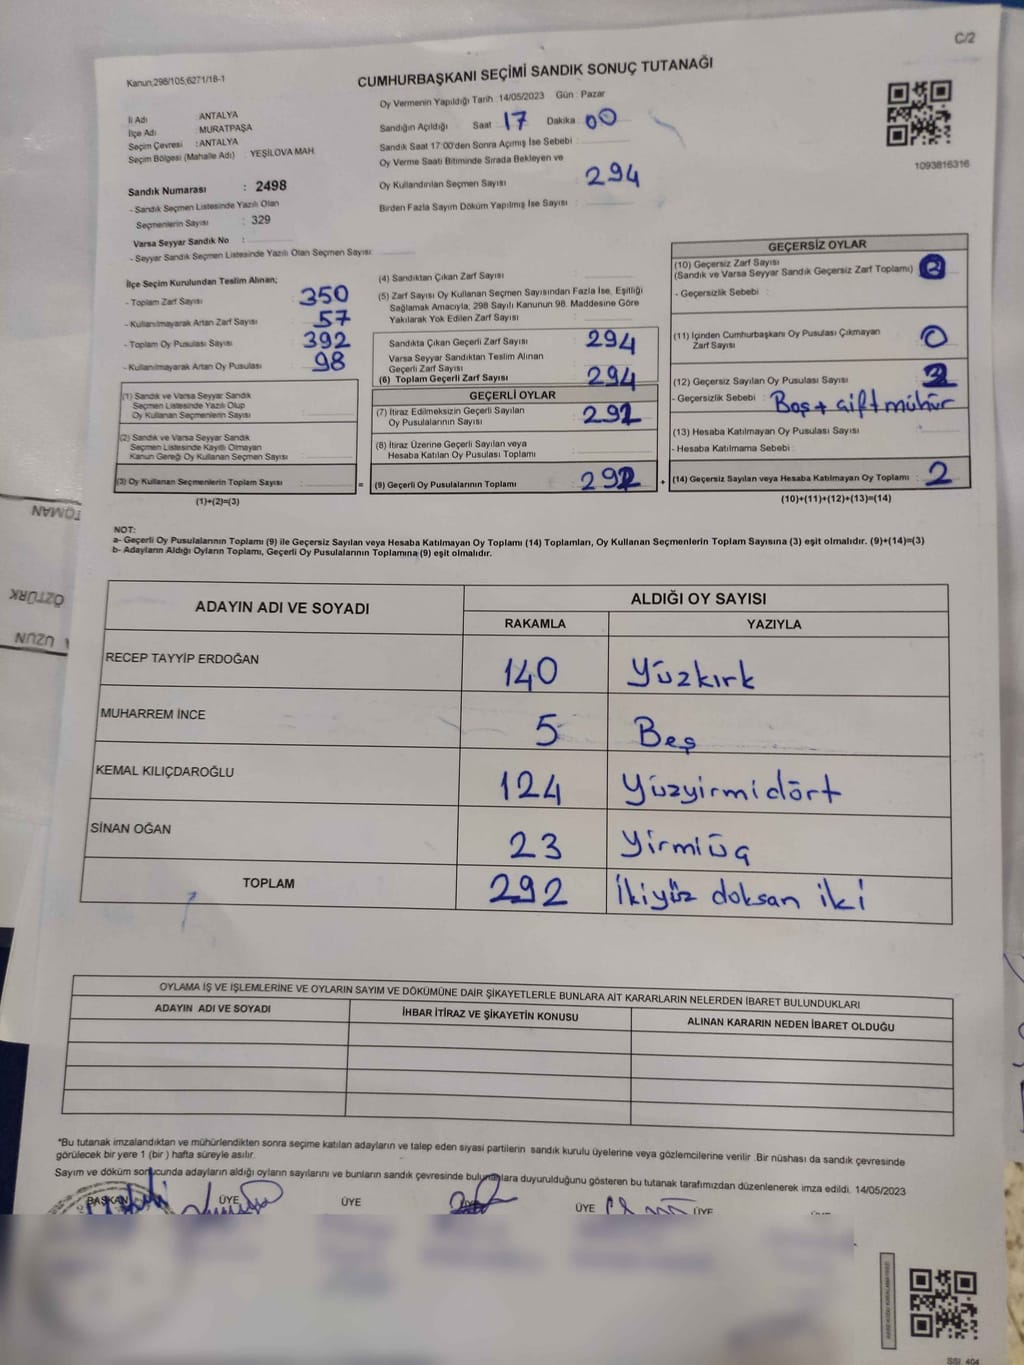 C/2
Kanun:298/105;6271/18-1
CUMHURBAŞKANI SEÇİMİ SANDIK SONUÇ TUTANAĞI
İl Adı : ANTALYA
İlçe Adı : MURATPAŞA
Seçim Çevresi : ANTALYA
Seçim Bölgesi (Mahalle Adı) : YEŞİLOVA MAH.
Sandık Numarası : 2498
- Sandık Seçmen Listesinde Yazılı Olan
Seçmenlerin Sayısı : 329
Varsa Seyyar Sandık No :
- Seyyar Sandık Listesinde Yazılı Olan Seçmen Sayısı:
Oy Vermenin Yapıldığı Tarih :14/05/2023 Gün : Pazar
Sandığın Açıldığı Saat : 17 Dakika : 00
Sandık Saat 17:00'den Sonra Açımış İse Sebebi :
Oy Verme Saati Bitiminde Sırada Bekleyen ve
Oy Kullandırılan Seçmen Sayısı : 294
Birden Fazla Sayım Döküm Yapılmış İse Sayısı :
1093816316
İlçe Seçim Kurulundan Teslim Alınan;
- Toplam Zarf Sayısı : 350
- Kullanılmayarak Artan Zarf Sayısı : 57
- Toplam Oy Pusulası Sayısı : 392
- Kullanılmayarak Artan Oy Pusulası : 98
(1) Sandık ve Varsa Seyyar Sandık
Seçmen Listesinde Yazılı Olup
Oy Kullanan Seçmenlerin Sayısı :
(2) Sandık ve Varsa Seyyar Sandık
Seçmen Listesinde Kayıtlı Olmayan
Kanun Gereği Oy Kullanan Seçmen Sayısı :
(3) Oy Kullanan Seçmenlerin Toplam Sayısı : =
(1)+(2)=(3)
(4) Sandıktan Çıkan Zarf Sayısı :
(5) Zarf Sayısı Oy Kullanan Seçmen Sayısından Fazla İse, Eşitliği
Sağlamak Amacıyla; 298 Sayılı Kanunun 98. Maddesine Göre
Yakılarak Yok Edilen Zarf Sayısı :
Sandıkta Çıkan Geçerli Zarf Sayısı : 294
Varsa Seyyar Sandıktan Teslim Alınan
Geçerli Zarf Sayısı :
(6) Toplam Geçerli Zarf Sayısı : 294
GEÇERLİ OYLAR
(7) İtiraz Edilmeksizin Geçerli Sayılan
Oy Pusulalarının Sayısı : 292
(8) İtiraz Üzerine Geçerli Sayılan veya
Hesaba Katılan Oy Pusulası Toplamı :
(9) Geçerli Oy Pusulalarının Toplamı : 292 +
GEÇERSİZ OYLAR
(10) Geçersiz Zarf Sayısı
(Sandık ve Varsa Seyyar Sandık Geçersiz Zarf Toplamı) :
- Geçersizlik Sebebi :
(11) İçinden Cumhurbaşkanı Oy Pusulası Çıkmayan
Zarf Sayısı : 0
(12) Geçersiz Sayılan Oy Pusulası Sayısı : 2
- Geçersizlik Sebebi : Boş + çift mühür
(13) Hesaba Katılmayan Oy Pusulası Sayısı :
- Hesaba Katılmama Sebebi :
(14) Geçersiz Sayılan veya Hesaba Katılmayan Oy Toplamı : 2
(10)+(11)+(12)+(13)=(14)
NOT:
a- Geçerli Oy Pusulalarının Toplamı (9) ile Geçersiz Sayılan veya Hesaba Katılmayan Oy Toplamı (14) Toplamları, Oy Kullanan Seçmenlerin Toplam Sayısına (3) eşit olmalıdır. (9)+(14)=(3)
b- Adayların Aldığı Oyların Toplamı, Geçerli Oy Pusulalarının Toplamına (9) eşit olmalıdır.
ADAYIN ADI VE SOYADI ALDIĞI OY SAYISI
RAKAMLA YAZIYLA
RECEP TAYYİP ERDOĞAN 140 Yüzkırk
MUHARREM İNCE 5 Beş
KEMAL KILIÇDAROĞLU 124 Yüzyirmidört
SİNAN OĞAN 23 Yirmiüç
TOPLAM 292 İkiyüz doksan iki
OYLAMA İŞ VE İŞLEMLERİNE VE OYLARIN SAYIM VE DÖKÜMÜNE DAİR ŞİKAYETLERLE BUNLARA AİT KARARLARIN NELERDEN İBARET BULUNDUKLARI
ADAYIN ADI VE SOYADI İHBAR İTİRAZ VE ŞİKAYETİN KONUSU ALINAN KARARIN NEDEN İBARET OLDUĞU
*Bu tutanak imzalandıktan ve mühürlendikten sonra seçime katılan adayların ve talep eden siyasi partilerin sandık kurulu üyelerine veya gözlemcilerine verilir .Bir nüshası da sandık çevresinde
görülecek bir yere 1 (bir ) hafta süreyle asılır.
Sayım ve döküm sonucunda adayların aldığı oyların sayılarını ve bunların sandık çevresinde bulunanlara duyurulduğunu gösteren bu tutanak tarafımızdan düzenlenerek imza edildi. 14/05/2023
BAŞKAN ÜYE ÜYE ÜYE ÜYE
TOMAN
ÖZTÜRK
UZUN